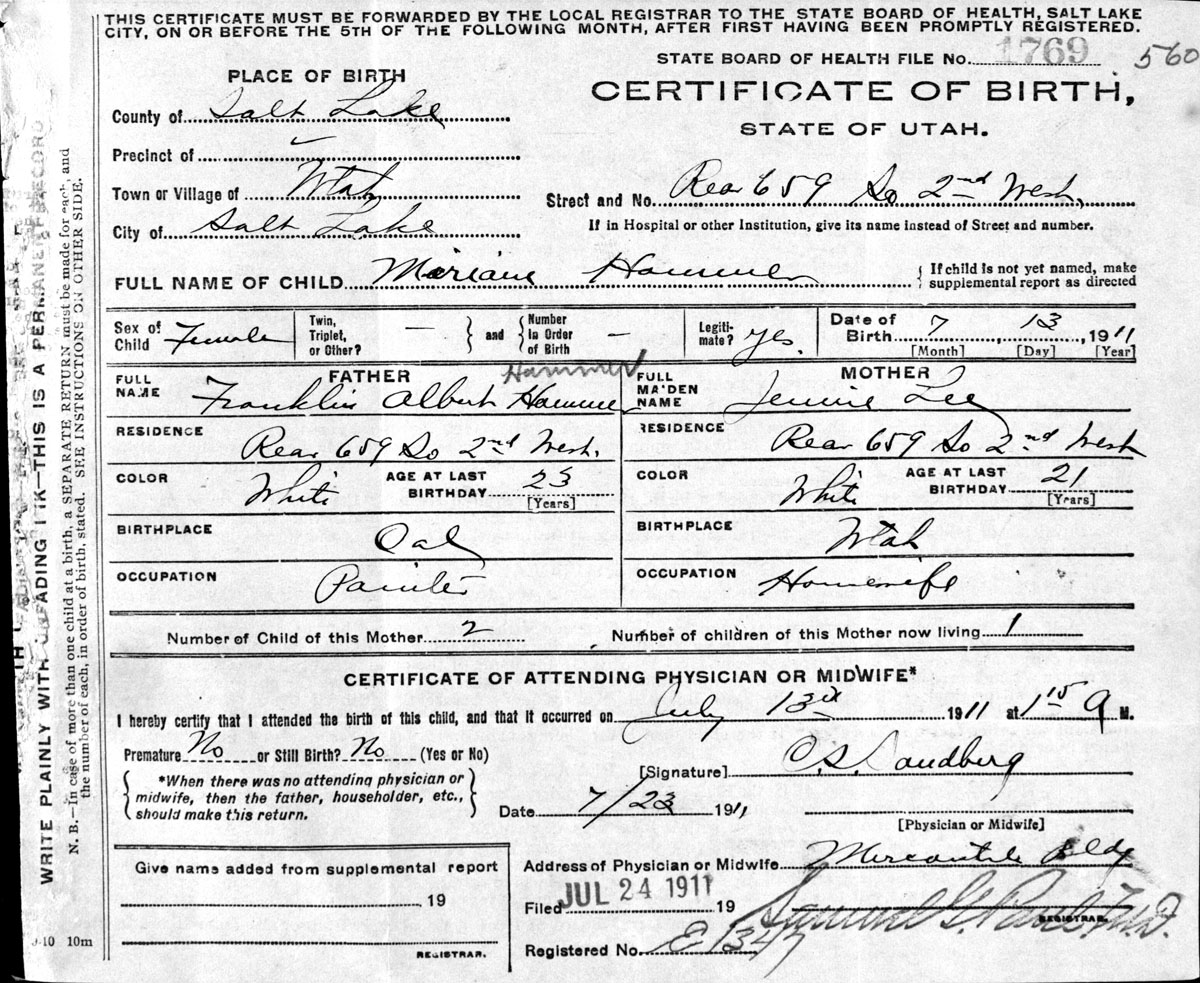 THIS CERTIFICATE MUST BE FORWARDED BY THE LOCAL REGISTRAR TO THE STATE BOARD OF HEALTH, SALT LAKE
CITY, ON OR BEFORE THE 5TH OF THE FOLLOWING MONTH, AFTER FIRST HAVING BEEN PROMPTLY REGISTERED.
STATE BOARD OF HEALTH FILE No. 1769 560
PLACE OF BIRTH
CERTIFICATE OF BIRTH,
STATE OF UTAH.
County of Salt Lake
Precinct of
Town or Village of Utah
Street and No. Rear 659 So 2nd West.
City of Salt Lake
If in Hospital or other Institution, give its name instead of Street and number.
FULL NAME OF CHILD Hammer
{ If child is not yet named, make
supplemental report as directed
Sex of Child Female
Twin, Triplet, or Other? —
and
Number In Order of Birth —
Legiti-mate? Yes.
Date of Birth 7 13, 1911
[Month] [Day] [Year]
FATHER
Hammer
FULL NAME Franklin Albert Hammer
RESIDENCE Rear 659 So 2nd West.
COLOR White
AGE AT LAST BIRTHDAY 23
[Years]
BIRTHPLACE Cal
OCCUPATION Painter
MOTHER
FULL MAIDEN NAME Jennie Lee
RESIDENCE Rear 659 So 2nd West
COLOR White
AGE AT LAST BIRTHDAY 21
[Years]
BIRTHPLACE Utah
OCCUPATION Housewife
Number of Child of this Mother 2
Number of children of this Mother now living 1
CERTIFICATE OF ATTENDING PHYSICIAN OR MIDWIFE*
I hereby certify that I attended the birth of this child, and that it occurred on July 13th 1911 at 1 15 A M.
Premature No or Still Birth? No (Yes or No)
{ *When there was no attending physician or
midwife, then the father, householder, etc.,
should make this return. }
[Signature] C. S. Sandberg
Date 7/23 1911
[Physician or Midwife]
Give name added from supplemental report
19
REGISTRAR.
Address of Physician or Midwife Mercantile Bldg
Filed JUL 24 1911 19
REGISTRAR.
Registered No. E 1347
10m
WRITE PLAINLY WITH UNFADING INK—THIS IS A PERMANENT RECORD
N. B.—In case of more than one child at a birth, a SEPARATE RETURN must be made for each, and
the number of each, in order of birth, stated. SEE INSTRUCTIONS ON OTHER SIDE.